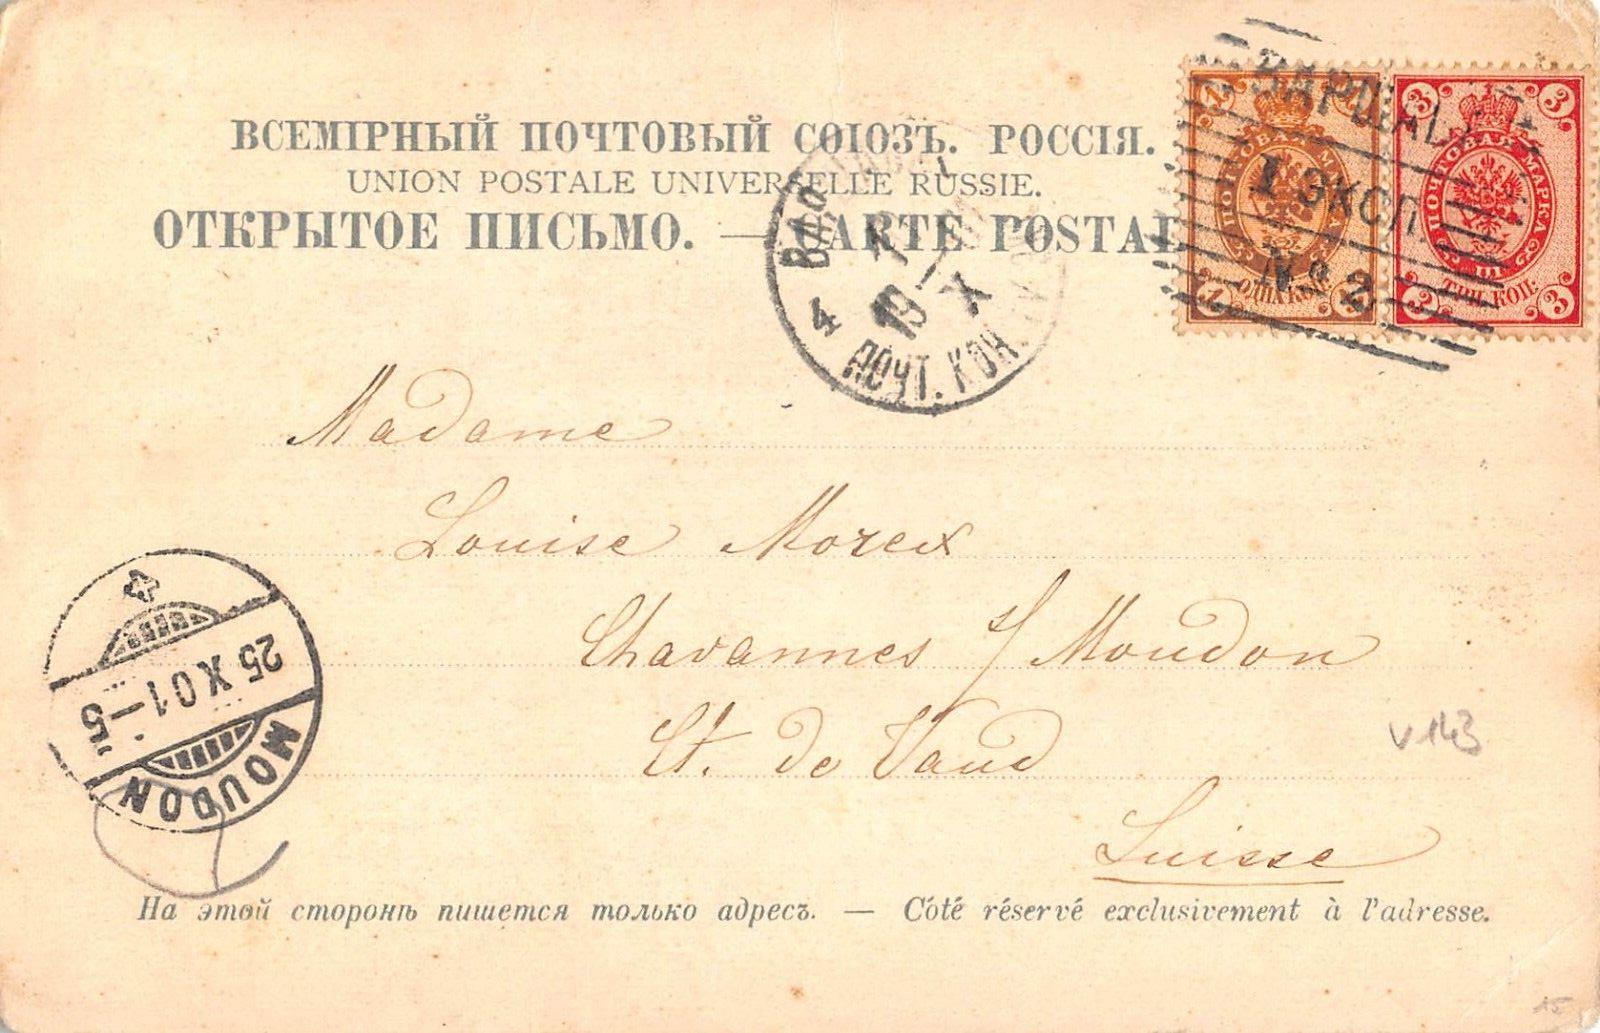 ВСЕМІРНЫЙ ПОЧТОВЫЙ СОЮЗЪ. РОССІЯ.
UNION POSTALE UNIVERSELLE RUSSIE.
ОТКРЫТОЕ ПИСЬМО. — CARTE POSTAL
1 1 1
ПОЧТОВАЯ МАРКА
ОДНА КОП.
3 3 3 3
ПОЧТОВАЯ МАРКА
III
ТРИ КОП.
ВАРШАВА
I ЭКСП.
№ 2
4
19 X
ПОЧТ. КОН.
Madame
Louise Morex
Chavannes s/ Moudon
Ct. de Vaud
Suisse
MOUDON
25 X 01 – 5
V 143
На этой сторонѣ пишется только адресъ. — Côté réservé exclusivement à l'adresse.
15